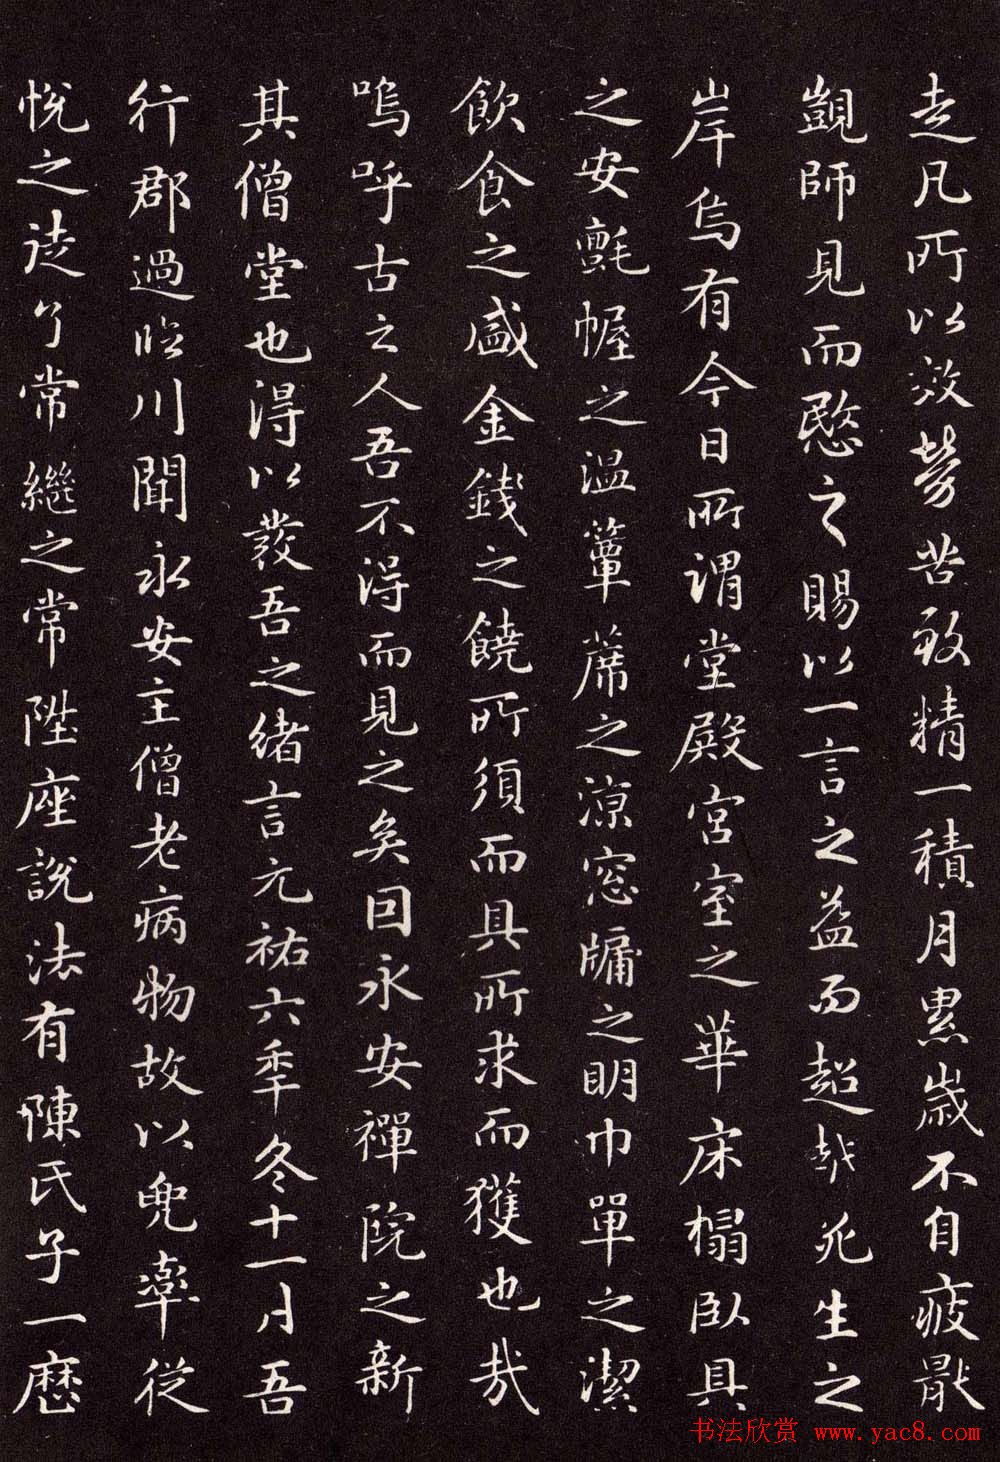 走凡所以效勞苦致精一積月累歲不自疲厭
覬師見而愍之賜以一言之益而超越死生之
岸烏有今日所謂堂殿宮室之華床榻臥具
之安氈幄之温簟蓆之涼窓牖之明巾單之潔
飲食之盛金錢之饒所須而具所求而獲也哉
嗚呼古之人吾不得而見之矣因永安禪院之新
其僧堂也得以發吾之緒言元祐六季冬十一月吾
行郡過臨川聞永安主僧老病物故以兜率從
悅之徒了常繼之常陞座說法有陳氏子一歷
书法欣赏 www.yac8.com